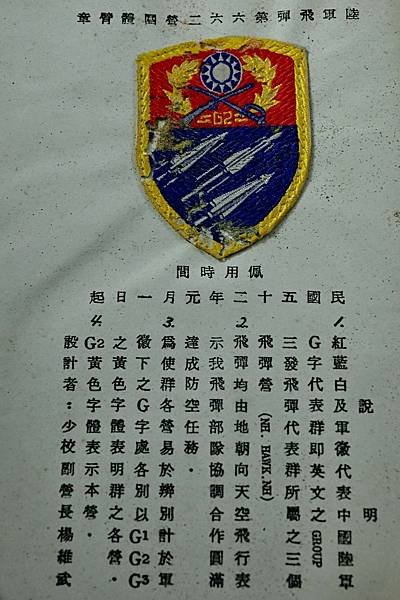 陸軍飛彈第六六二營團體臂章
G2
佩用時間
民國五十二年元月一日起
說明
1.紅藍白及軍徽代表中國陸軍
G字代表群即英文之GROUP
三發飛彈代表群所屬之三個
飛彈營(NI. HAWK. NEI)
2.飛彈均由地朝向天空飛行表
示我飛彈部隊協調合作圓滿
達成防空任務.
3.為使群各營易於辨別計於軍
徽下之G字處各別以G1 G2 G3
之黃色字體表明群之各營.
4.G2黃色字體表示本營.
設計者:少校副營長楊雄武